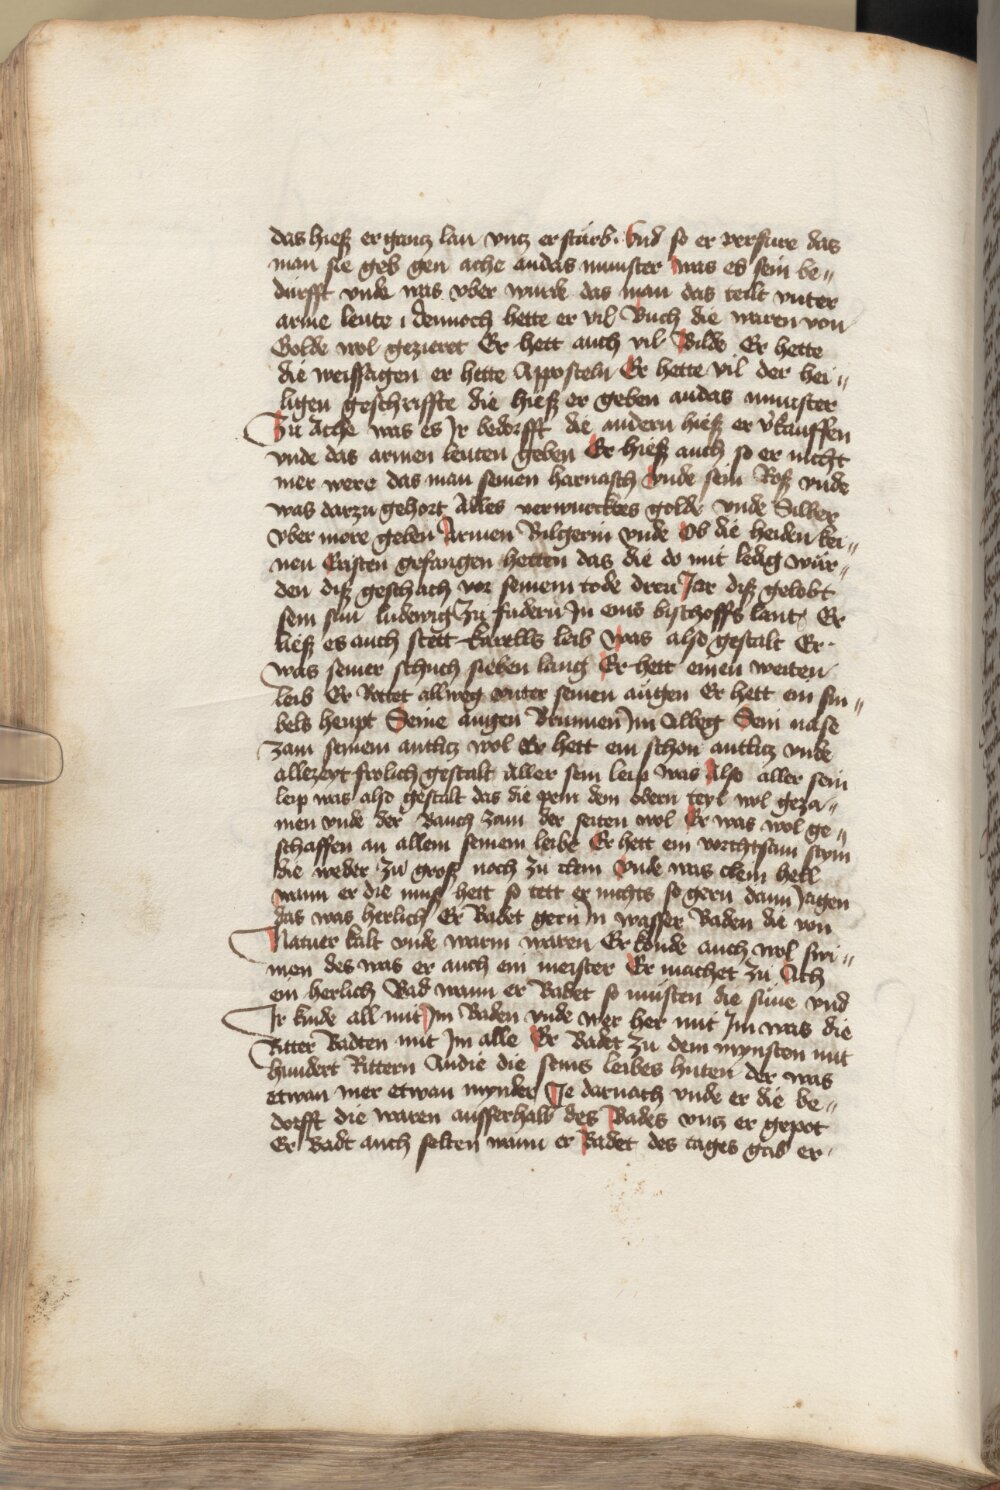 das hieß er gantz lan vntz er starb. Vnd so er verfure das
man sie geb gen ache an das munster was es sein be„
durfft vnde was vber wurde das man das teilt vnter
arme leute ı dennoch hette er vil Buch die waren von
Golde wol gezieret Er hett auch vil Bilde Er hette
die weissagen er hette Apposteln Er hette vil der hei„
ligen geschriffte die hieß er geben an das munster
Zu Ache was es Ir bedorfft die andern hieß er v̓kauffen
vnde das armen leuten geben Er hieß auch so er nicht
mer were das man seinen harnasch Vnde sein Roß vnde
was darzu gehort Alles verwurcktes golde vnde Silber
vber more geben Armen Bilgerin vnde Ob die heiden kei„
nen Cristen gefangen hetten das die do mit ledig wur„
den diß geschach vor seinem tode dreu Jar diß gelobt
sein sun ludewig Zu fudern In eins bischoffs lant Er
ließ es auch stett Karells leib was also gestalt Er
was seiner schuch sieben lang Er hett einen weiten
leib Er Rottet allweg vnter seinen augen Er hett ein sin„
bels heupt Seine augen Brunnen Im Allweg Sein nase
zam seinem antlitz wol Er hett ein schon antlitz vnde
allezeyt frolich gestalt Aller sein leip was Also aller sein
leip was also gestalt das die pein dem obern teyl wol geza„
men vnde der Bauch zam der seiten wol Er was wol ge„
schaffen an allem seinem leibe Er hett ein vorchtsam stym
die weder zu groß noch zu clein Vnde was clein hell
wann er die muß hett so tett er nichts so gern dann Jagen
das was herlich Er Badet gern In wasser Baden die von
Natuer kalt vnde warm waren Er konde auch wol swi„
men des was er auch ein meister Er machet zu Ach
ein herlich Bad wann er Badet so musten die sune vnd
Ir kinde all mit Im Baden vnde wer her mit Im was die
Ritter Badten mit Im alle Er Badet zu dem mynsten mit
hundert Rittern An die die seins leibes huten der was
etwan mer etwan mynder Je darnach vnde er die be„
dorfft die waren ausserhalb des Bades vntz er gepot
Er Badt auch selten wann er Badet des tages gab er